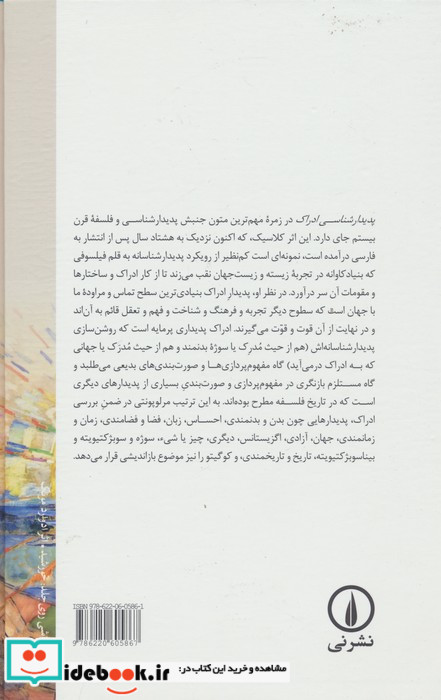 پدیدارشناسی ادراک در زمرهٔ مهم‌ترین متون جنبش پدیدارشناسی و فلسفهٔ قرن
بیستم جای دارد. این اثر کلاسیک، که اکنون نزدیک به هشتاد سال پس از انتشار به
فارسی درآمده است، نمونه‌ای است کم‌نظیر از رویکرد پدیدارشناسانه به قلم فیلسوفی
که بنیادکاوانه در تجربهٔ زیسته و زیست‌جهان نقب می‌زند تا از کار ادراک و ساختارها
و مقومات آن سر درآورد. در نظر او، پدیدارِ ادراک بنیادی‌ترین سطح تماس و مراودهٔ ما
با جهان است که سطوح دیگر تجربه و فرهنگ و شناخت و فهم و تعقل قائم به آن‌اند
و در نهایت از آن قوت و قوّت می‌گیرند. ادراک پدیداری پرمایه است که روشن‌سازی
پدیدارشناسانه‌اش (هم از حیث مُدرِک یا سوژهٔ بدنمند و هم از حیث مُدرَک یا جهانی
که به ادراک درمی‌آید) گاه مفهوم‌پردازی‌ها و صورت‌بندی‌های بدیعی می‌طلبد و
گاه مستلزم بازنگری در مفهوم‌پردازی و صورت‌بندیِ بسیاری از پدیدارهای دیگری
است که در تاریخ فلسفه مطرح بوده‌اند. به این ترتیب مرلوپونتی در ضمنِ بررسی
ادراک، پدیدارهایی چون بدن و بدنمندی، احساس، زبان، فضا و فضامندی، زمان و
زمانمندی، جهان، آزادی، اگزیستانس، دیگری، چیز یا شیء، سوژه و سوبژکتیویته و
بیناسوبژکتیویته، تاریخ و تاریخمندی، و کوگیتو را نیز موضوع بازاندیشی قرار می‌دهد.
ISBN 978-622-06-0586-1
9 786220 605867
نشرنی
مشاهده و خرید این کتاب در:
idebook.ir